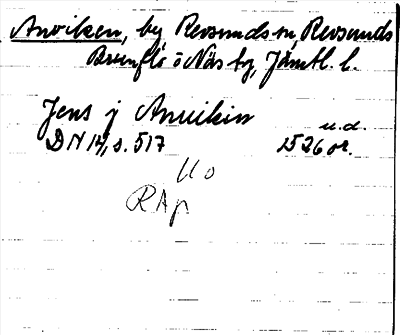 Anviken, by Revsunds sn, Revsunds
Brunflo o Näs tg, Jämtl. l.
Jens j Anuikin
DN 14, s. 517
u.d.
1526 or.
Uo
RAp